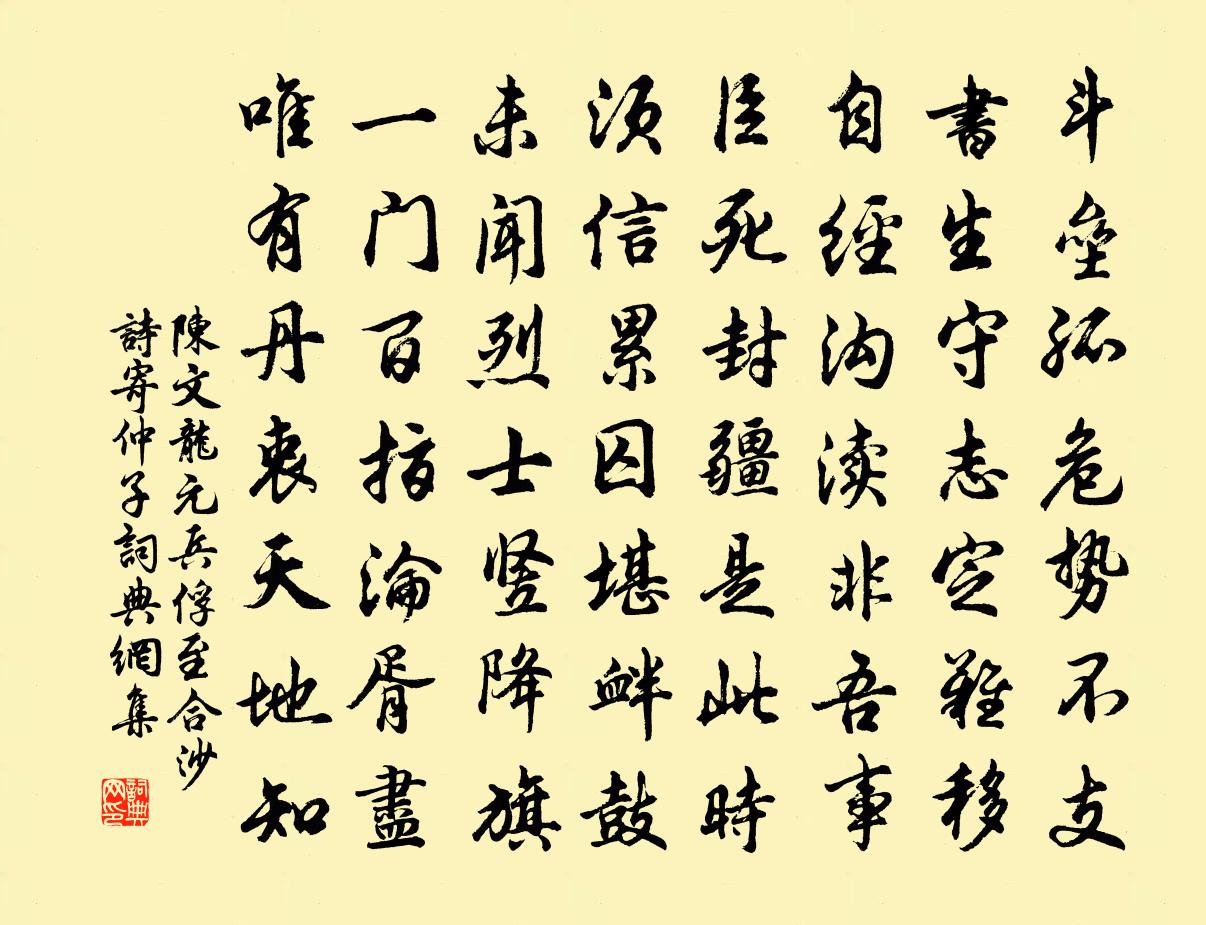 斗壘孤危势不支
書生守志定難移
自經沟渎非吾事
臣死封疆是此時
须信累囚堪衅鼓
未闻烈士竖降旗
一门百指淪胥盡
唯有丹衷天地知
陳文龍元兵俘至合沙
詩寄仲子詞典網集
詞典网印